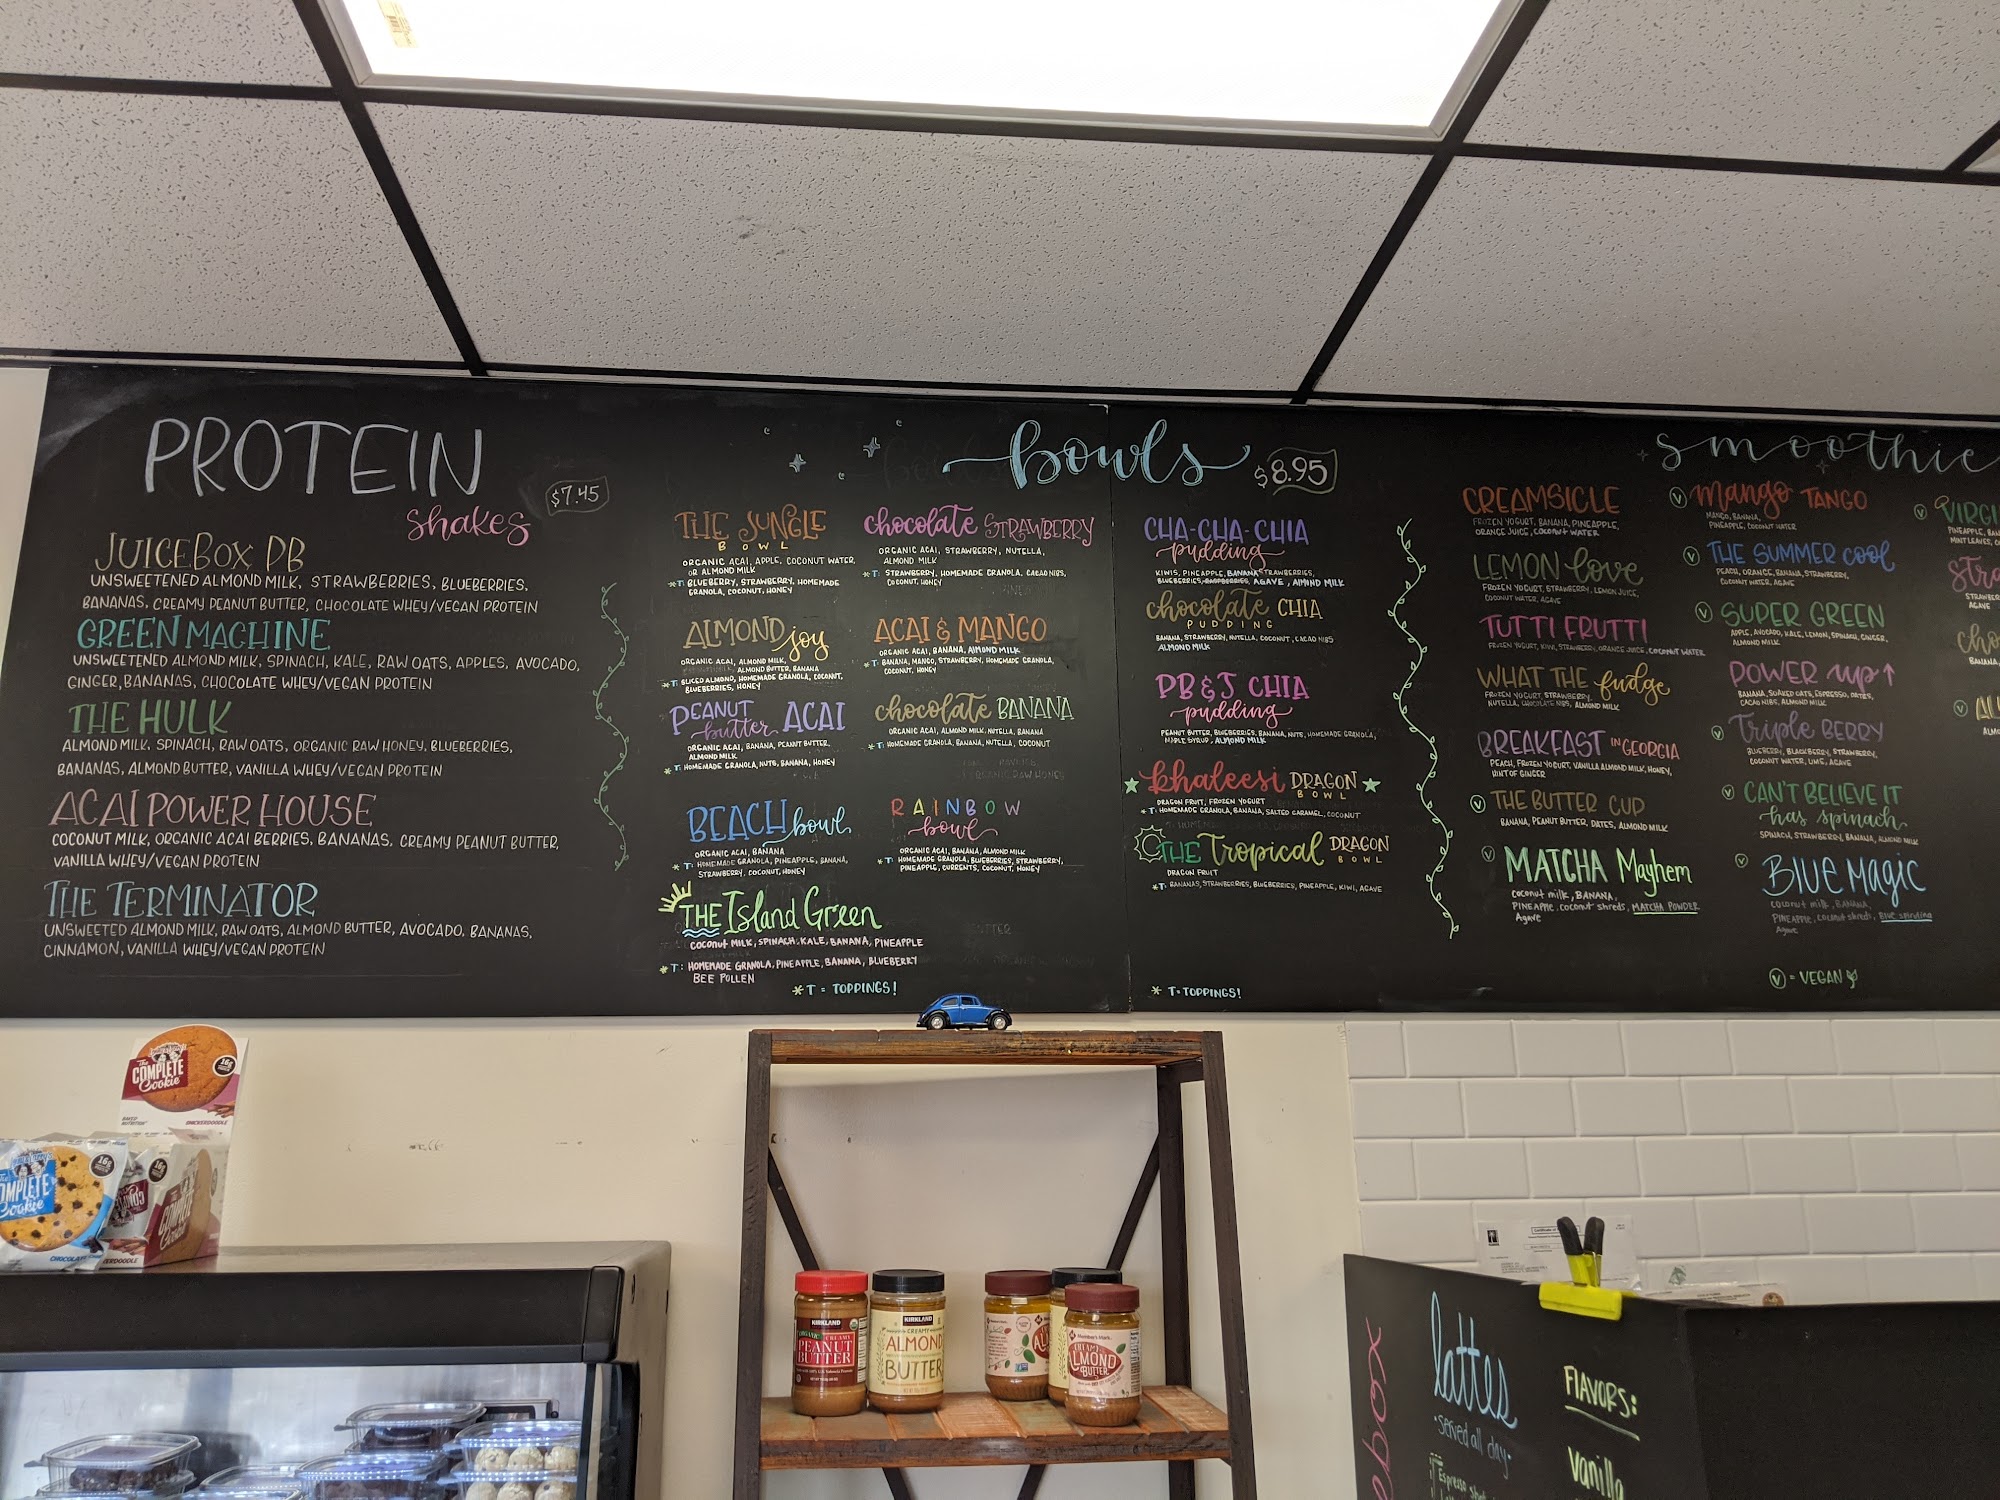 PROTEIN
shakes
$7.45
JUICEBOX PB
UNSWEETENED ALMOND MILK, STRAWBERRIES, BLUEBERRIES,
BANANAS, CREAMY PEANUT BUTTER, CHOCOLATE WHEY/VEGAN PROTEIN
GREEN MACHINE
UNSWEETENED ALMOND MILK, SPINACH, KALE, RAW OATS, APPLES, AVOCADO,
GINGER, BANANAS, CHOCOLATE WHEY/VEGAN PROTEIN
THE HULK
ALMOND MILK, SPINACH, RAW OATS, ORGANIC RAW HONEY, BLUEBERRIES,
BANANAS, ALMOND BUTTER, VANILLA WHEY/VEGAN PROTEIN
ACAI POWER HOUSE
COCONUT MILK, ORGANIC ACAI BERRIES, BANANAS, CREAMY PEANUT BUTTER,
VANILLA WHEY/VEGAN PROTEIN
THE TERMINATOR
UNSWEETED ALMOND MILK, RAW OATS, ALMOND BUTTER, AVOCADO, BANANAS,
CINNAMON, VANILLA WHEY/VEGAN PROTEIN
bowls
$8.95
THE JUNGLE
BOWL
ORGANIC ACAI, APPLE, COCONUT WATER,
OR ALMOND MILK
*T: BLUEBERRY, STRAWBERRY, HOMEMADE
GRANOLA, COCONUT, HONEY
ALMOND joy
ORGANIC ACAI, ALMOND MILK,
ALMOND BUTTER, BANANA
*T: SLICED ALMOND, HOMEMADE GRANOLA, COCONUT,
BLUEBERRIES, HONEY
PEANUT butter ACAI
ORGANIC ACAI, BANANA, PEANUT BUTTER,
ALMOND MILK
*T: HOMEMADE GRANOLA, NUTS, BANANA, HONEY
BEACH bowl
ORGANIC ACAI, BANANA
*T: HOMEMADE GRANOLA, PINEAPPLE, BANANA,
STRAWBERRY, COCONUT, HONEY
THE Island Green
COCONUT MILK, SPINACH, KALE, BANANA, PINEAPPLE
*T: HOMEMADE GRANOLA, PINEAPPLE, BANANA, BLUEBERRY
BEE POLLEN
*T = TOPPINGS!
chocolate STRAWBERRY
ORGANIC ACAI, STRAWBERRY, NUTELLA,
ALMOND MILK
*T: STRAWBERRY, HOMEMADE GRANOLA, CACAO NIBS,
COCONUT, HONEY
ACAI & MANGO
ORGANIC ACAI, BANANA, ALMOND MILK
*T: BANANA, MANGO, STRAWBERRY, HOMEMADE GRANOLA,
COCONUT, HONEY
chocolate BANANA
ORGANIC ACAI, ALMOND MILK, NUTELLA, BANANA
*T: HOMEMADE GRANOLA, BANANA, NUTELLA, COCONUT
RAINBOW
bowl
ORGANIC ACAI, BANANA, ALMOND MILK
*T: HOMEMADE GRANOLA, BLUEBERRIES, STRAWBERRY,
PINEAPPLE, CURRENTS, COCONUT, HONEY
CHA-CHA-CHIA
pudding
KIWIS, PINEAPPLE, BANANA, STRAWBERRIES,
BLUEBERRIES, AGAVE, ALMOND MILK
chocolate CHIA
PUDDING
BANANA, STRAWBERRY, NUTELLA, COCONUT, CACAO NIBS
ALMOND MILK
PB & J CHIA
pudding
PEANUT BUTTER, BLUEBERRIES, BANANA, NUTS, HOMEMADE GRANOLA,
MAPLE SYRUP, ALMOND MILK
khaleesi DRAGON
BOWL
DRAGON FRUIT, FROZEN YOGURT
*T: HOMEMADE GRANOLA, BANANA, SALTED CARAMEL, COCONUT
THE Tropical DRAGON
BOWL
DRAGON FRUIT
*T: BANANAS, STRAWBERRIES, BLUEBERRIES, PINEAPPLE, KIWI, AGAVE
*T=TOPPINGS!
smoothie
CREAMSICLE
FROZEN YOGURT, BANANA, PINEAPPLE,
ORANGE JUICE, COCONUT WATER
LEMON love
FROZEN YOGURT, STRAWBERRY, LEMON JUICE,
COCONUT WATER, AGAVE
TUTTI FRUTTI
FROZEN YOGURT, KIWI, STRAWBERRY, ORANGE JUICE, COCONUT WATER
WHAT THE fudge
FROZEN YOGURT, STRAWBERRY,
NUTELLA, CHOCOLATE NIBS, ALMOND MILK
BREAKFAST IN GEORGIA
PEACH, FROZEN YOGURT, VANILLA ALMOND MILK, HONEY,
HINT OF GINGER
V THE BUTTER CUP
BANANA, PEANUT BUTTER, DATES, ALMOND MILK
V MATCHA Mayhem
COCONUT MILK, BANANA,
PINEAPPLE, COCONUT SHREDS, MATCHA POWDER
Agave
V mango TANGO
MANGO, BANANA,
PINEAPPLE, COCONUT WATER
V THE SUMMER cool
PEACH, ORANGE, BANANA, STRAWBERRY,
COCONUT WATER, AGAVE
V SUPER GREEN
APPLE, AVOCADO, KALE, LEMON, SPINACH, GINGER,
ALMOND MILK
POWER up
BANANA, SOAKED OATS, ESPRESSO, DATES,
CACAO NIBS, ALMOND MILK
V Triple BERRY
BLUEBERRY, BLACKBERRY, STRAWBERRY,
COCONUT WATER, LIME, AGAVE
V CAN'T BELIEVE IT
has spinach
SPINACH, STRAWBERRY, BANANA, ALMOND MILK
V BLUE Magic
COCONUT MILK, BANANA,
PINEAPPLE, COCONUT SHREDS, BLUE SPIRULINA
Agave
V = VEGAN
V VIRGI
PINEAPPLE, BAN
MINT LEAVES,
STRAWBER
AGAVE
BANANA,
V
The
COMPLETE
Cookie
16g
SNICKERDOODLE
COMPLETE
Cookie
16g
KIRKLAND
ORGANIC CREAMY
PEANUT
BUTTER
KIRKLAND
CREAMY
ALMOND
BUTTER
Member's Mark
CREAMY
ALMOND
BUTTER
lattes
·served all day·
FLAVORS:
vanilla